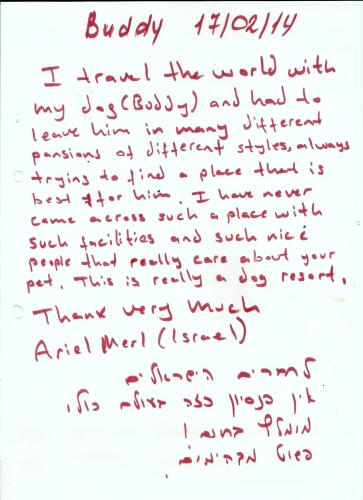 Buddy 17/02/14
I travel the world with
my dog (Buddy) and had to
leave him in many different
pansions of different styles, always
trying to find a place that is
best ffor him. I have never
came across such a place with
such facilities and such nice
people that really care about your
pet. This is really a dog resort.
Thank very much
Ariel Merl (Israel)
לחברים הישראלים
אין פנסיון כזה בעולם כולו
מומלץ בחום!
פשוט מקהימים.